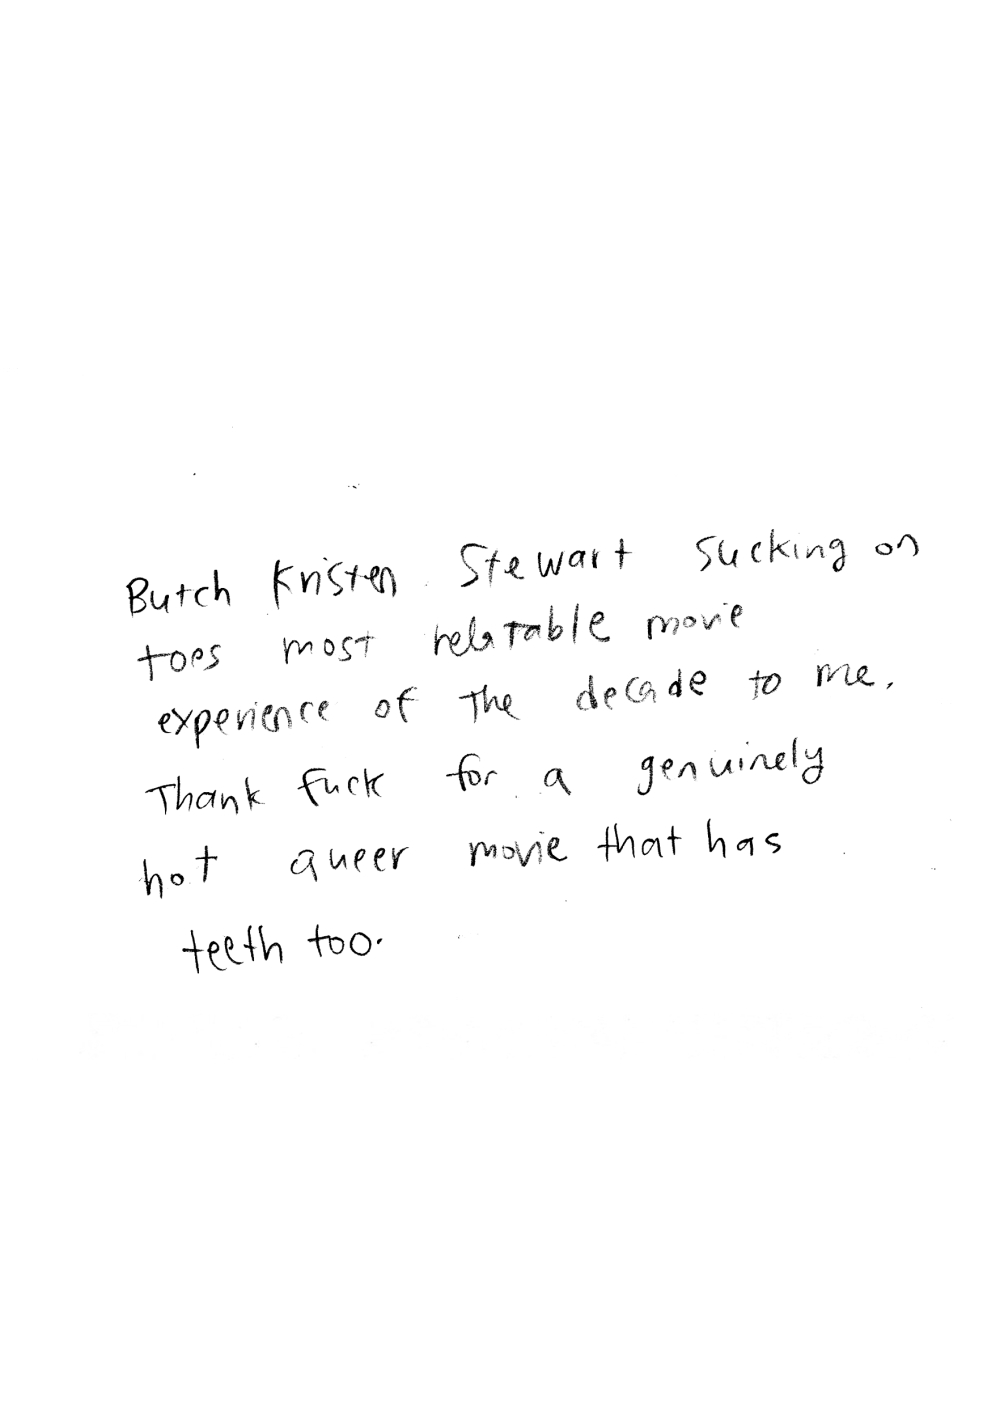 Butch Kristen Stewart sucking on
toes most relatable movie
experience of the decade to me.
Thank fuck for a genuinely
hot queer movie that has
teeth too.